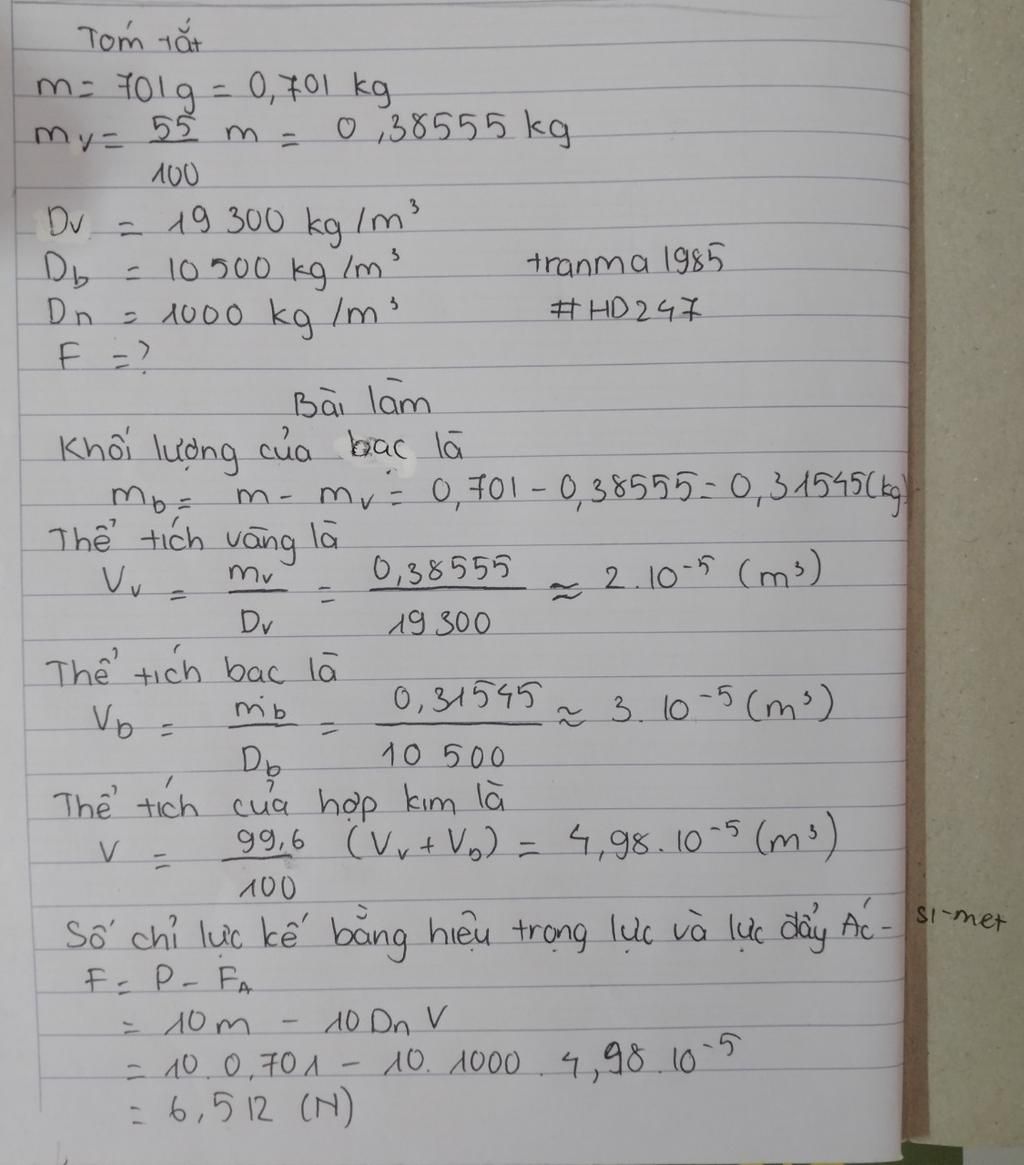 Tóm tắt
m = 701g = 0,701 kg
m_v = 55/100 m = 0,38555 kg
D_v = 19 300 kg/m³
D_b = 10 500 kg/m³ tranma 1985
D_n = 1000 kg/m³ #HD247
F = ?
Bài làm
Khối lượng của bạc là
m_b = m - m_v = 0,701 - 0,38555 = 0,31545(kg)
Thể tích vàng là
V_v = m_v/D_v = 0,38555/19 300 ≈ 2.10⁻⁵ (m³)
Thể tích bạc là
V_b = m_b/D_b = 0,31545/10 500 ≈ 3.10⁻⁵ (m³)
Thể tích của hợp kim là
V = 99,6/100 (V_v + V_b) = 4,98.10⁻⁵ (m³)
Số chỉ lực kế bằng hiệu trọng lực và lực đẩy Ác-si-met
F = P - F_A
= 10m - 10D_n V
= 10.0,701 - 10.1000.4,98.10⁻⁵
= 6,512 (N)